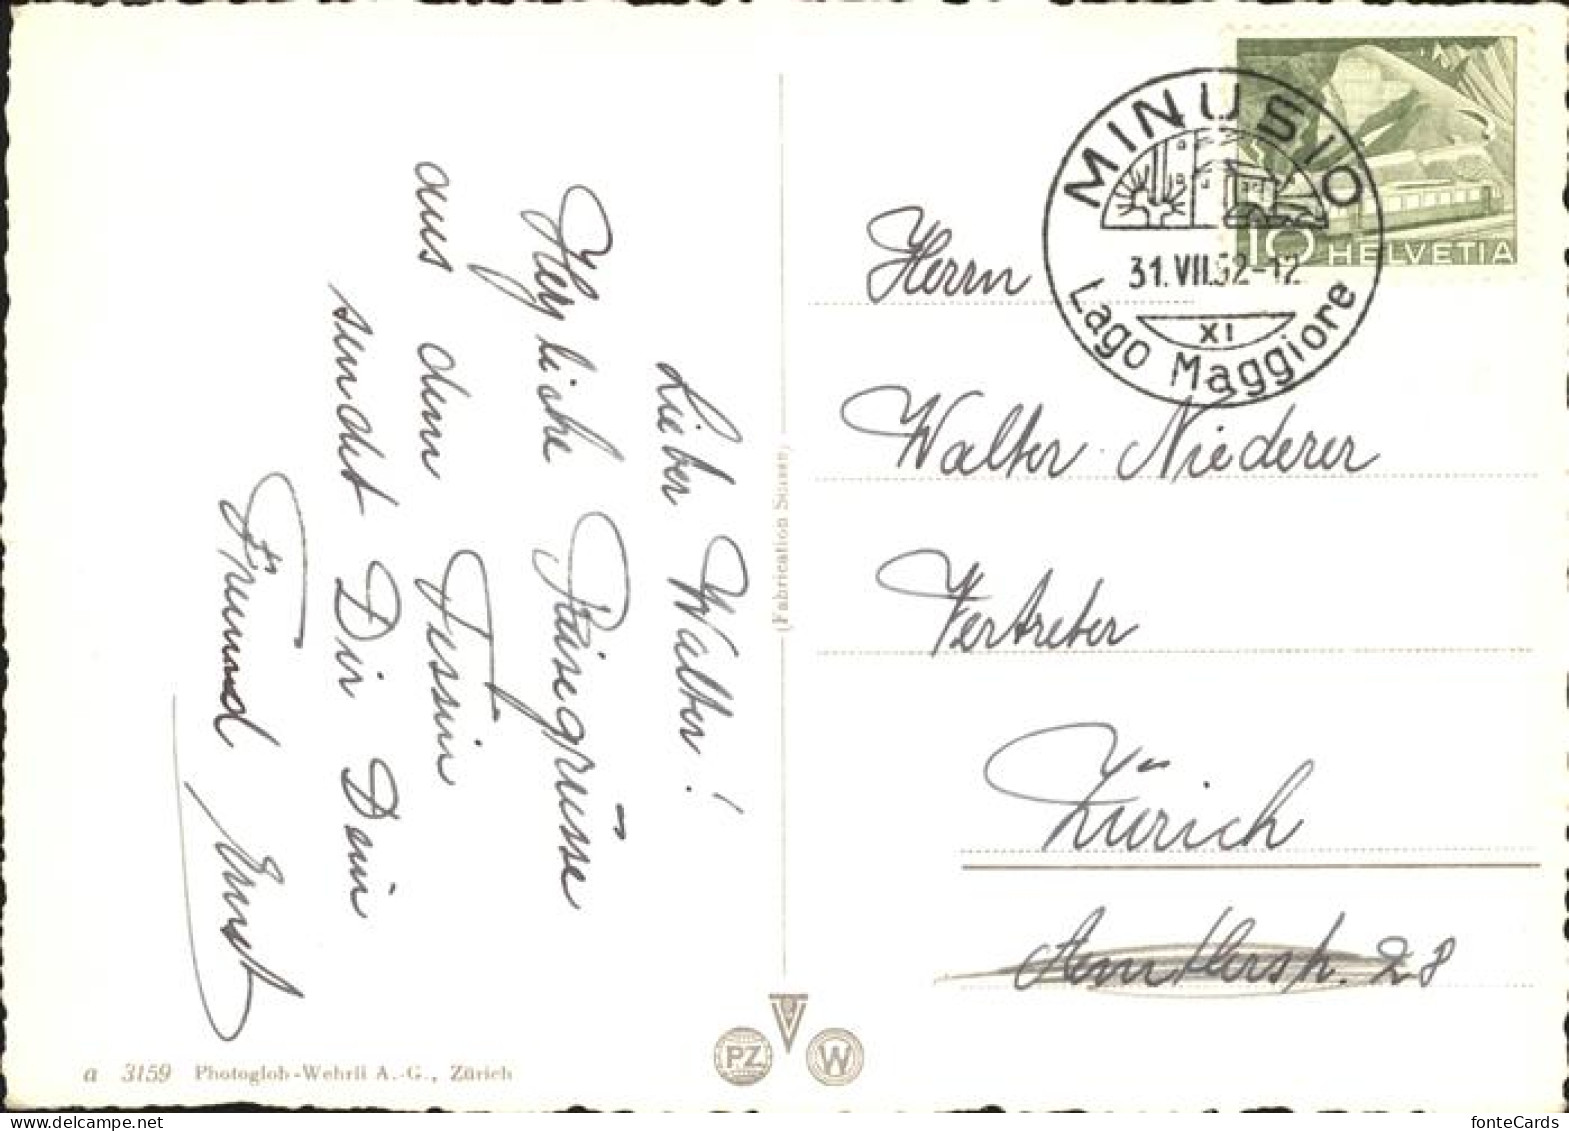 Lieber Walter!
Herzliche Reisegrüsse
aus dem Tessin
sendet Dir Dein
Freund Ernst
(Fabrication Suisse)
a 3159 Photoglob-Wehrli A.-G., Zürich
PZ
W
MINUSIO
31.VII.52-12
XI
Lago Maggiore
10 HELVETIA
Herrn
Walter Niederer
Vertreter
Zürich
Aemtlerstr. 28
fonteCards